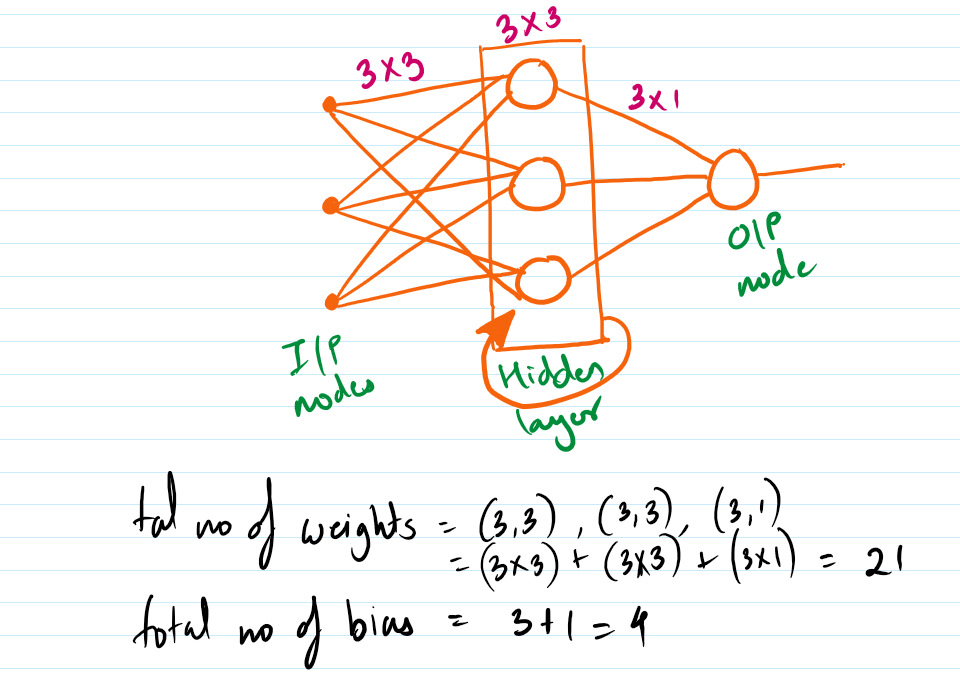 3×3
3×3
3×1
O/P
node
I/P
nodes
Hidden
layer
tal no of weights = (3,3), (3,3), (3,1)
= (3×3) + (3×3) + (3×1) = 21
total no of bias = 3+1=4